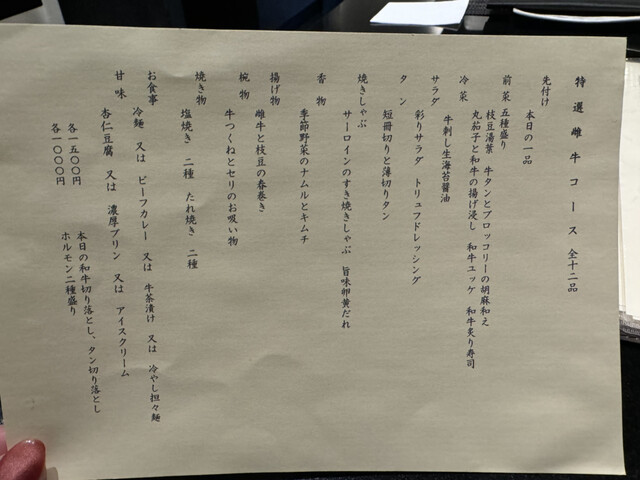 特選雌牛コース 全十二品
先付け
本日の一品
前菜 五種盛り
枝豆湯葉 牛タンとブロッコリーの胡麻和え
丸茄子と和牛の揚げ浸し 和牛ユッケ 和牛炙り寿司
冷菜
牛刺し生海苔醤油
サラダ
彩りサラダ トリュフドレッシング
タン
短冊切りと薄切りタン
焼きしゃぶ
サーロインのすき焼きしゃぶ 旨味卵黄だれ
香物
季節野菜のナムルとキムチ
揚げ物
雌牛と枝豆の春巻き
椀物
牛つくねとセリのお吸い物
焼き物
塩焼き 二種 たれ焼き 二種
お食事
冷麺 又は ビーフカレー 又は 牛茶漬け 又は 冷やし担々麺
甘味
杏仁豆腐 又は 濃厚プリン 又は アイスクリーム
各一五〇〇円 本日の和牛切り落とし、タン切り落とし
各一〇〇〇円 ホルモン二種盛り